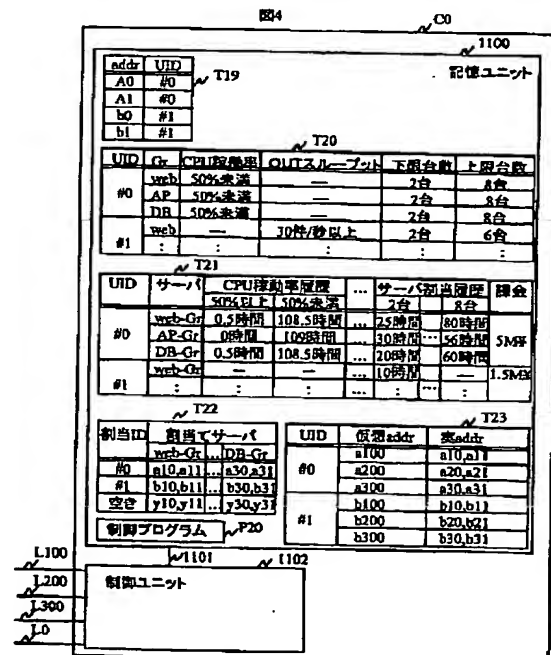 図4
C0
1100
記憶ユニット
T19
addr UID
A0 #0
A1 #0
b0 #1
b1 #1
T20
UID Gr CPU稼働率 OUTスループット 下限台数 上限台数
#0 web 50%未満 — 2台 8台
AP 50%未満 — 2台 8台
DB 50%未満 — 2台 8台
#1 web — 30件/秒以上 2台 6台
: : : : :
T21
UID サーバ CPU稼動率履歴 … サーバ割当履歴 課金
50%以上 50%未満 2台 8台
#0 web-Gr 0.5時間 108.5時間 … 25時間 … 80時間 5M¥
AP-Gr 0時間 109時間 … 30時間 … 56時間
DB-Gr 0.5時間 108.5時間 … 20時間 60時間
#1 web-Gr — — … 10時間 — 1.5M¥
: : : … : … :
T22
割当ID 割当てサーバ
web-Gr … DB-Gr
#0 a10,a11 … a30,a31
#1 b10,b11 … b30,b31
空き y10,y11 … y30,y31
T23
UID 仮想addr 実addr
#0 a100 a10,a11
a200 a20,a21
a300 a30,a31
#1 b100 b10,b11
b200 b20,b21
b300 b30,b31
制御プログラム P20
1101
1102
制御ユニット
L100
L200
L300
L0